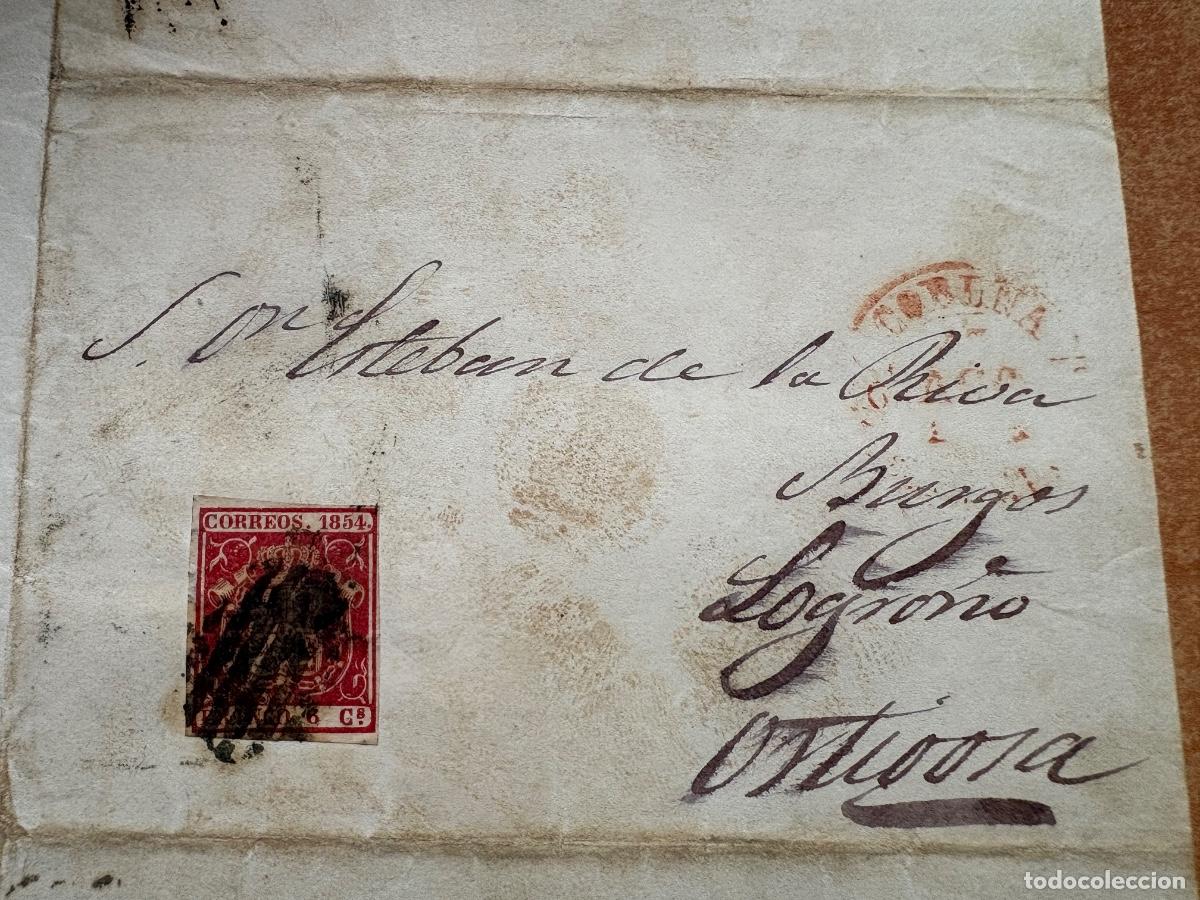 CORUÑA
S. Dn Esteban de la Riva
Burgos
Logroño
Ortigosa
CORREOS. 1854.
FRANCO. 6 Cs
todocoleccion